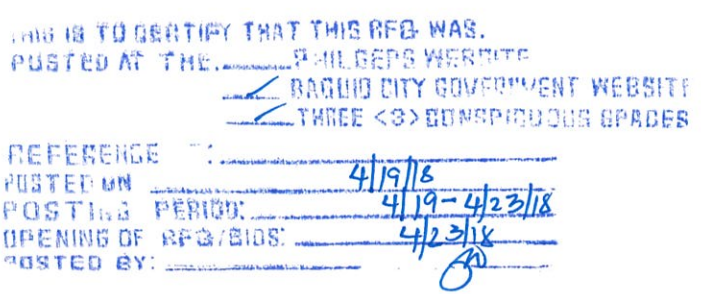 THIS IS TO CERTIFY THAT THIS RFQ WAS.
POSTED AT THE. PHILGEPS WEBSITE
BAGUIO CITY GOVERNMENT WEBSITE
THREE <3> CONSPICUOUS SPACES
REFERENCE :
POSTED ON 4/19/18
POSTING PERIOD: 4/19-4/23/18
OPENING OF RFQ/BIDS: 4/23/18
POSTED BY: